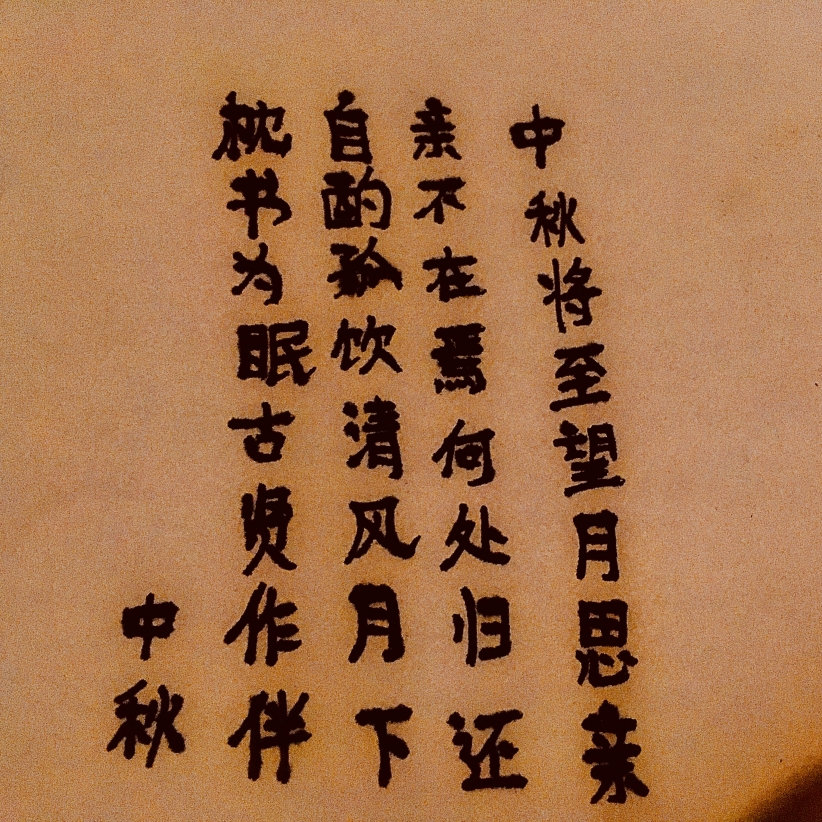 中秋将至望月思亲
亲不在焉何处归还
自酌孤饮清风月下
枕书为眠古贤作伴
中秋